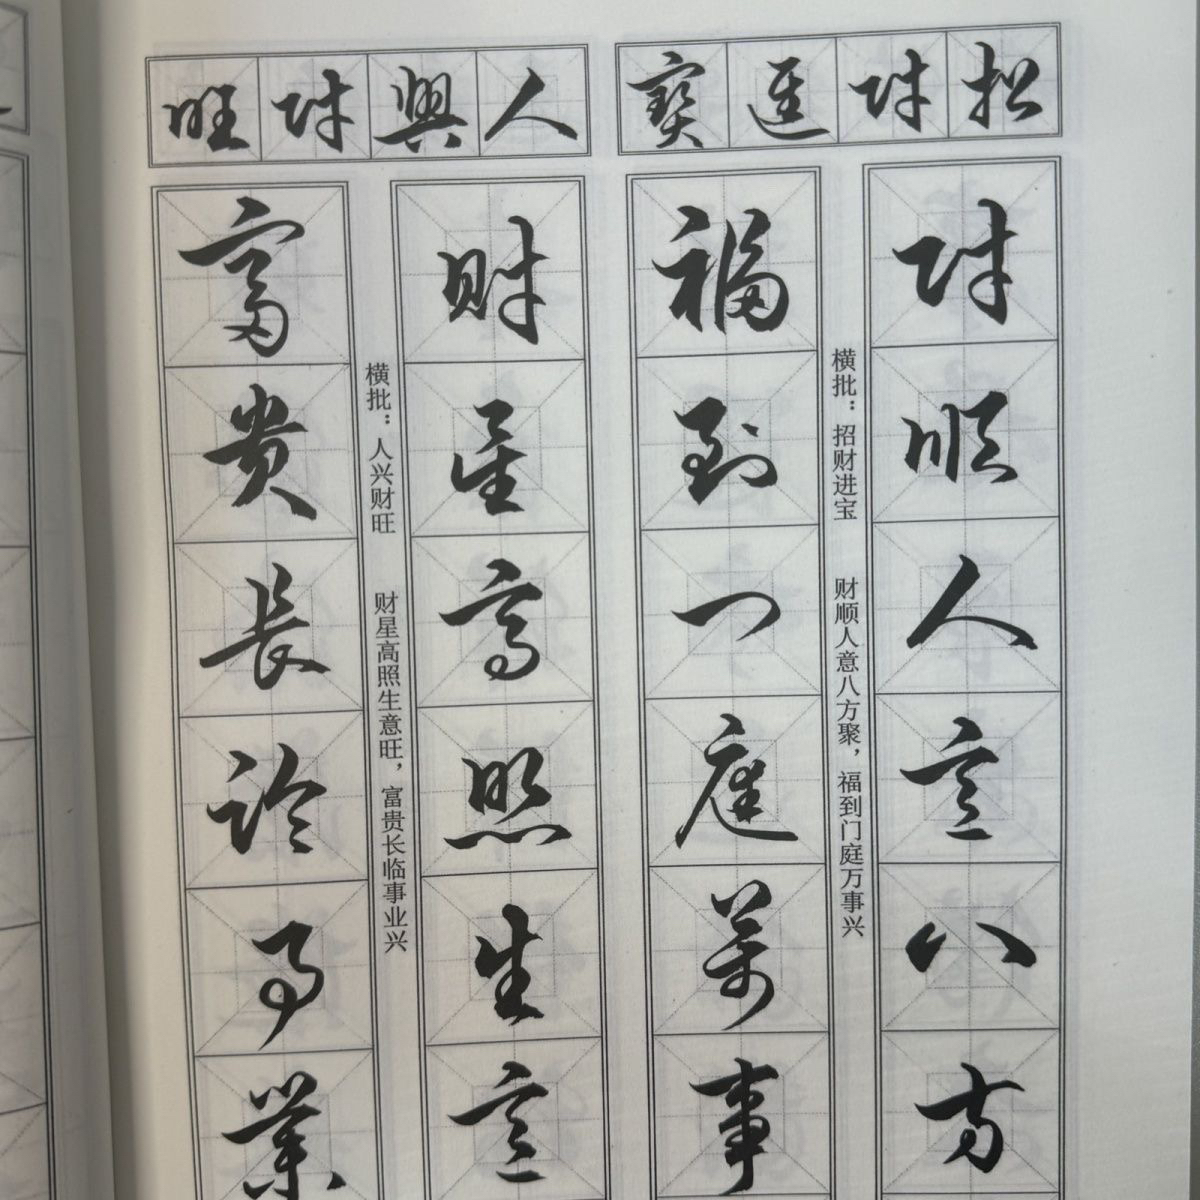 招财進寶
财順人意八方
福到门庭萬事
横批：招财进宝 财顺人意八方聚，福到门庭万事兴
人興财旺
财星高照生意
富貴長临事業
横批：人兴财旺 财星高照生意旺，富贵长临事业兴